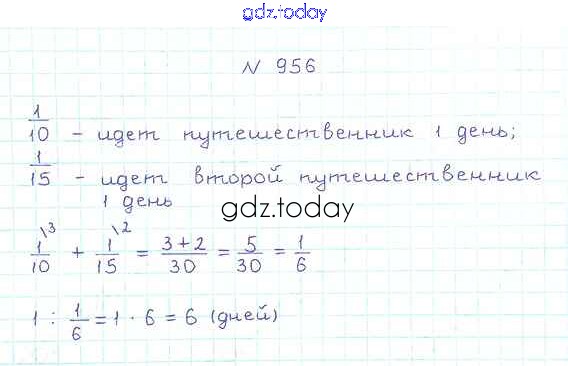 gdz.today
N 956
1/10 - идет путешественник 1 день;
1/15 - идет второй путешественник
1 день
gdz.today
1/10 \3 + 1/15 \2 = 3+2/30 = 5/30 = 1/6
1 : 1/6 = 1 · 6 = 6 (дней)